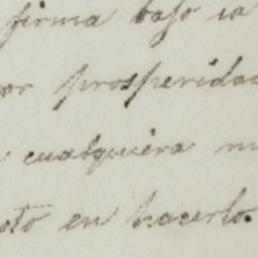 firma bajo la
or prosperidad
cualquiera
oto en hacerlo.